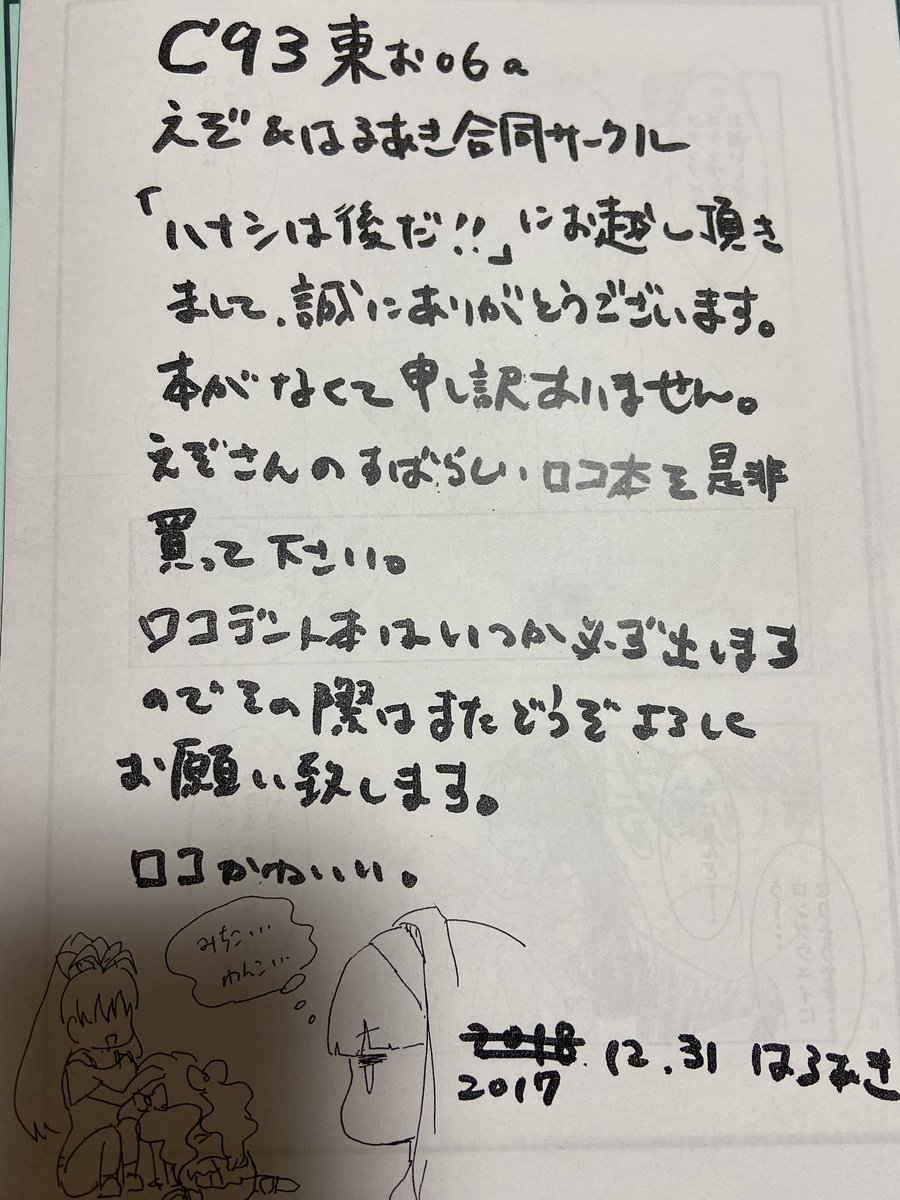 C93 東お06a
えぞ&はるあき合同サークル
「ハナシは後だ!!」にお越し頂き
まして、誠にありがとうございます。
本がなくて申し訳ありません。
えぞさんのすばらしいロコ本を是非
買って下さい。
ロコデント本はいつか必ず出します
のでその際はまたどうぞよろしく
お願い致します。
ロコかわいい。
みちこ…
わんこ…
2018
2017 12.31 はるあき